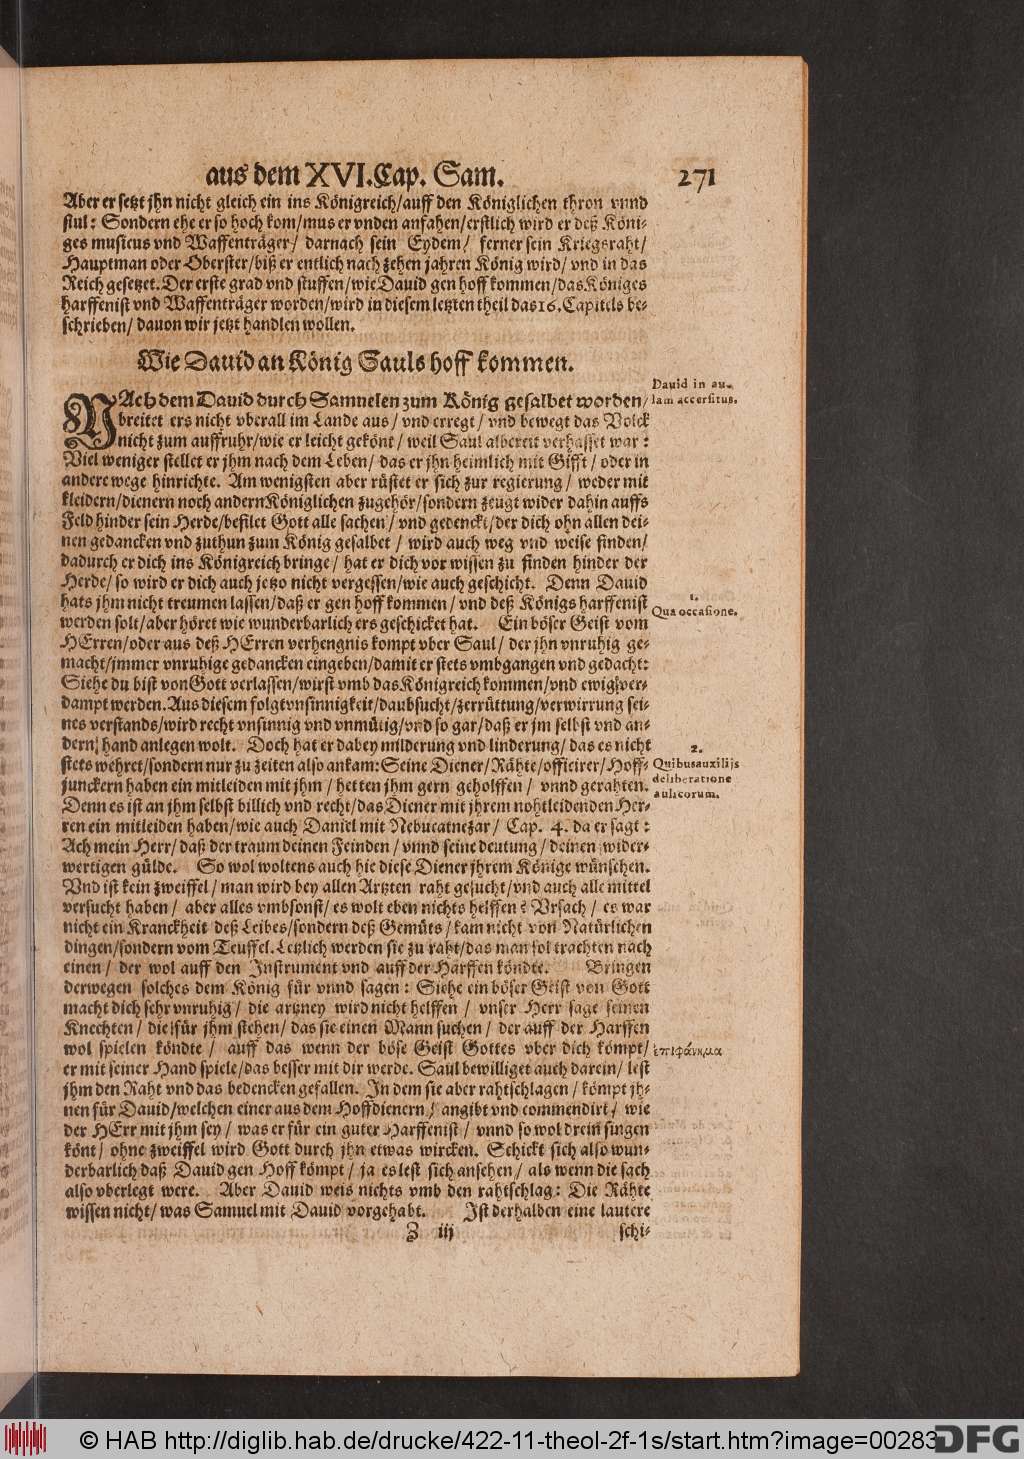 aus dem XVI. Cap. Sam. 271
Aber er setzt jhn nicht gleich ein ins Königreich/auff den Königlichen thron vnnd
stul: Sondern ehe er so hoch kom/mus er vnden anfahen/erstlich wird er deß Köni-
ges musicus vnd Waffenträger/ darnach sein Eydem/ ferner sein Kriegsraht/
Hauptman oder Oberster/biß er entlich nach zehen jahren König wird/ vnd in das
Reich gesetzet. Der erste grad vnd stuffen/wie Dauid gen hoff kommen/das Königes
harffenist vnd Waffenträger worden/wird in diesem letzten theil das 16. Capitels be-
schrieben/ dauon wir jetzt handlen wollen.
Wie Dauid an König Sauls hoff kommen.
Dauid in au-
lam accersitus.
NAch dem Dauid durch Samuelen zum König gesalbet worden/
breitet ers nicht vberall im Lande aus/ vnd erregt/ vnd bewegt das Volck
nicht zum auffruhr/wie er leicht gekönt/ weil Saul albereit verhasset war:
Viel weniger stellet er jhm nach dem Leben/ das er jhn heimlich mit Gifft/ oder in
andere wege hinrichte. Am wenigsten aber rüstet er sich zur regierung/ weder mit
kleidern/dienern noch andern Königlichen zugehör/sondern zeugt wider dahin auffs
Feld hinder sein Herde/befilet Gott alle sachen/ vnd gedenckt/der dich ohn allen dei-
nen gedancken vnd zuthun zum König gesalbet/ wird auch weg vnd weise finden/
dadurch er dich ins Königreich bringe/ hat er dich vor wissen zu finden hinder der
Herde/ so wird er dich auch jetzo nicht vergessen/wie auch geschicht. Denn Dauid
hats jhm nicht treumen lassen/daß er gen hoff kommen/ vnd deß Königs harffenist
werden solt/aber höret wie wunderbarlich ers geschicket hat. Ein böser Geist vom
1.
Qua occasione.
HErren/oder aus deß HErren verhengnis kompt vber Saul/ der jhn vnruhig ge-
macht/jmmer vnruhige gedancken eingeben/damit er stets vmbgangen vnd gedacht:
Siehe du bist von Gott verlassen/wirst vmb das Königreich kommen/vnd ewig ver-
dampt werden. Aus diesem folgt vnsinnigkeit/daubsucht/zerrüttung/verwirrung sei-
nes verstands/wird recht vnsinnig vnd vnmütig/vnd so gar/daß er jm selbst vnd an-
dern hand anlegen wolt. Doch hat er dabey milderung vnd linderung/ das es nicht
stets wehret/sondern nur zu zeiten also ankam: Seine Diener/Rähte/officirer/Hoff-
2.
Quibus auxilijs
deliberatione
aulicorum.
junckern haben ein mitleiden mit jhm/ hetten jhm gern geholffen/ vnnd gerahten.
Denn es ist an jhm selbst billich vnd recht/das Diener mit jhrem nohtleidenden Her-
ren ein mitleiden haben/wie auch Daniel mit Nebucatnezar/ Cap. 4. da er sagt:
Ach mein Herr/ daß der traum deinen Feinden/ vnnd seine deutung/ deinen wider-
wertigen gülde. So wol woltens auch hie diese Diener jhrem Könige wünschen.
Vnd ist kein zweiffel/ man wird bey allen Artzten raht gesucht/vnd auch alle mittel
versucht haben/ aber alles vmbsonst/ es wolt eben nichts helffen? Vrsach/ es war
nicht ein Kranckheit deß Leibes/sondern deß Gemüts/ kam nicht von Natürlichen
dingen/sondern vom Teuffel. Letzlich werden sie zu raht/das man sol trachten nach
einen/ der wol auff den Instrument vnd auff der Harffen köndte. Bringen
derwegen solches dem König für vnnd sagen: Siehe ein böser Geist von Gott
macht dich sehr vnruhig/ die artzney wird nicht helffen/ vnser Herr sage seinen
Knechten/ die für jhm stehen/ das sie einen Mann suchen/ der auff der Harffen
wol spielen köndte/ auff das wenn der böse Geist Gottes vber dich kömpt/
ἐπιφώνημα
er mit seiner Hand spiele/das besser mit dir werde. Saul bewilliget auch darein/ lest
jhm den Raht vnd das bedencken gefallen. In dem sie aber rahtschlagen/ kömpt jh-
nen für Dauid/welchen einer aus dem Hoffdienern/ angibt vnd commendirt/ wie
der HErr mit jhm sey/ was er für ein guter Harffenist/ vnnd so wol drein singen
könt/ ohne zweiffel wird Gott durch jhn etwas wircken. Schickt sich also wun-
derbarlich daß Dauid gen Hoff kömpt/ ja es lest sich ansehen/ als wenn die sach
also vberlegt were. Aber Dauid weis nichts vmb den rahtschlag: Die Rähte
wissen nicht/ was Samuel mit Dauid vorgehabt. Ist derhalben eine lautere
Z iij schi-
© HAB http://diglib.hab.de/drucke/422-11-theol-2f-1s/start.htm?image=00283
DFG